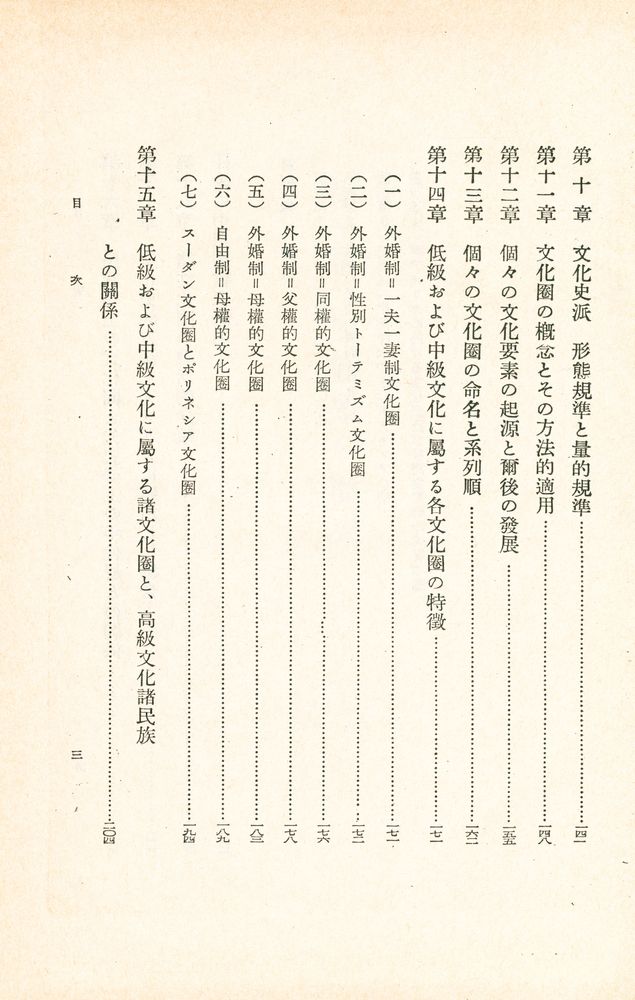 第十章 文化史派 形態規準と量的規準……………一四一
第十一章 文化圈の概念とその方法的適用……………一四八
第十二章 個々の文化要素の起源と爾後の發展……………一五五
第十三章 個々の文化圈の命名と系列順……………一六二
第十四章 低級および中級文化に屬する各文化圈の特徵……………一七一
(一) 外婚制=一夫一妻制文化圈……………一七一
(二) 外婚制=性別トーテミズム文化圈……………一七二
(三) 外婚制=同權的文化圈……………一七六
(四) 外婚制=父權的文化圈……………一七八
(五) 外婚制=母權的文化圈……………一八三
(六) 自由制=母權的文化圈……………一八九
(七) スーダン文化圈とポリネシア文化圈……………一九四
第十五章 低級および中級文化に屬する諸文化圈と、高級文化諸民族
との關係……………二〇四
目次 三